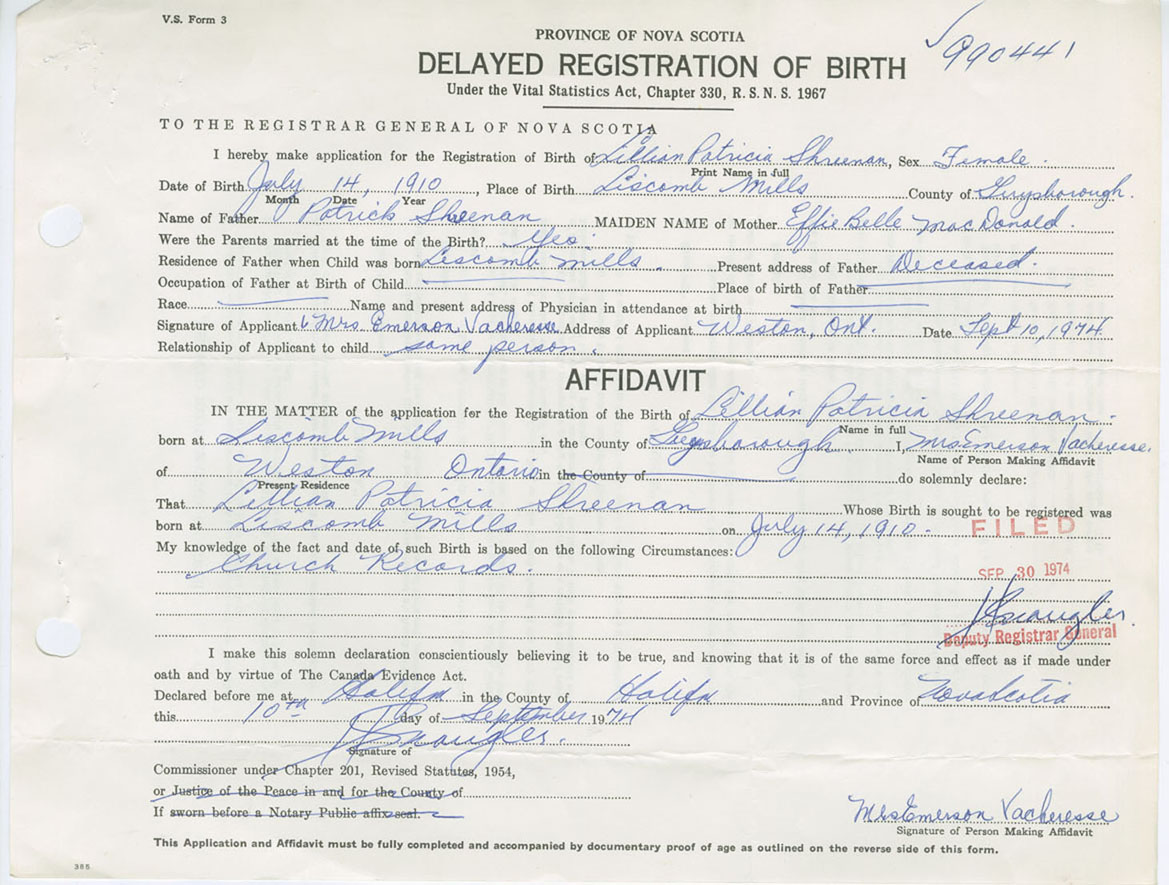 V.S. Form 3
990441
PROVINCE OF NOVA SCOTIA
DELAYED REGISTRATION OF BIRTH
Under the Vital Statistics Act, Chapter 330, R. S. N. S. 1967
TO THE REGISTRAR GENERAL OF NOVA SCOTIA
I hereby make application for the Registration of Birth of Lillian Patricia Shreenan, Sex Female.
Print Name in full
Date of Birth July 14, 1910, Place of Birth Liscomb Mills County of Guysborough.
Month Date Year
Name of Father Patrick Shreenan MAIDEN NAME of Mother Effie Belle MacDonald.
Were the Parents married at the time of the Birth? Yes.
Residence of Father when Child was born Liscomb Mills. Present address of Father Deceased.
Occupation of Father at Birth of Child Place of birth of Father
Race Name and present address of Physician in attendance at birth
Signature of Applicant Mrs. Emerson Vacheresse Address of Applicant Weston, Ont. Date Sept 10, 1974
Relationship of Applicant to child same person.
AFFIDAVIT
IN THE MATTER of the application for the Registration of the Birth of Lillian Patricia Shreenan.
Name in full
born at Liscomb Mills in the County of Guysborough I, Mrs Emerson Vacheresse.
Name of Person Making Affidavit
of Weston Ontario in the County of do solemnly declare:
Present Residence
That Lillian Patricia Shreenan Whose Birth is sought to be registered was
born at Liscomb Mills on July 14, 1910.
FILED
My knowledge of the fact and date of such Birth is based on the following Circumstances:
Church Records.
SEP 30 1974
Deputy Registrar General
I make this solemn declaration conscientiously believing it to be true, and knowing that it is of the same force and effect as if made under
oath and by virtue of The Canada Evidence Act.
Declared before me at Halifax in the County of Halifax and Province of Nova Scotia
this 10th day of September 1974
Signature of
Commissioner under Chapter 201, Revised Statutes, 1954,
or Justice of the Peace in and for the County of
If sworn before a Notary Public affix seal.
Mrs Emerson Vacheresse
Signature of Person Making Affidavit
This Application and Affidavit must be fully completed and accompanied by documentary proof of age as outlined on the reverse side of this form.
385